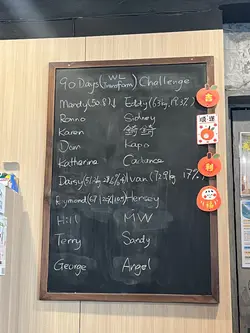 90 Days (WL Transform) Challenge
Mandy (50.8) Eddy (63kg, 19.3%)
Ronno Sidney
Karen 錡錡
Dom Kapo
Katharina Cadance
Daisy Ivan (72.9kg 17%)
Raymond Hersey
Hill MW
Terry Sandy
George Angel
吉
順運
利
福